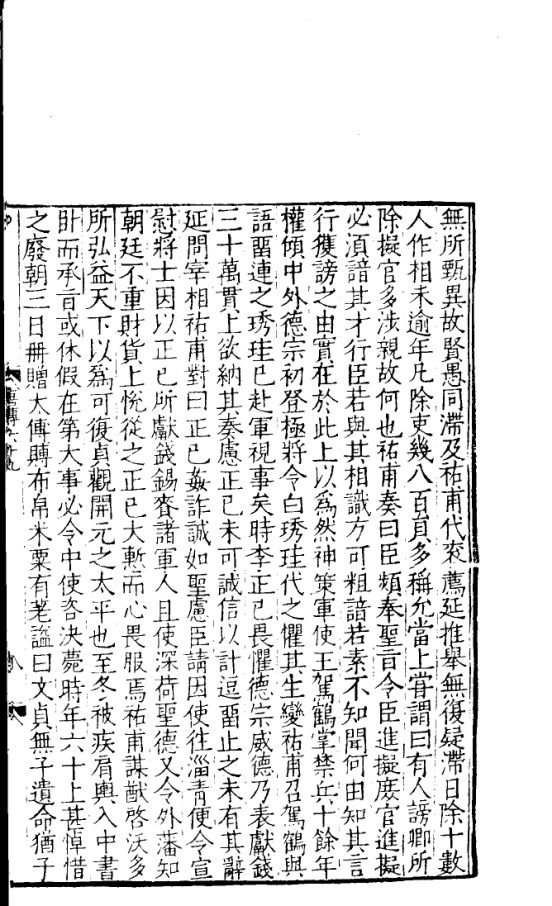 無所甄異故賢愚同滯及祐甫代衮薦延推舉無復疑滯日除十數
人作相未逾年凡除吏幾八百員多稱允當上嘗謂曰有人謗卿所
除擬官多涉親故何也祐甫奏曰臣頻奉聖旨令臣進擬庶官進擬
必須諳其才行臣若與其相識方可粗諳若素不知聞何由知其言
行獲謗之由實在於此上以為然神策軍使王駕鶴掌禁兵十餘年
權傾中外德宗初登極將令白琇珪代之懼其生變祐甫召駕鶴與
語留連之琇珪已赴軍視事矣時李正已畏懼德宗威德乃表獻錢
三十萬貫上欲納其奏慮正已未可誠信以計逗留止之未有其辭
延問宰相祐甫對曰正已姦詐誠如聖慮臣請因使往淄青便令宣
慰將士因以正已所獻錢錫賚諸軍人且使深荷聖德又令外藩知
朝廷不重財貨上悅從之正已大慙而心畏服焉祐甫謀猷啓沃多
所弘益天下以為可復貞觀開元之太平也至冬被疾肩輿入中書
卧而承旨或休假在第大事必令中使咨決薨時年六十上甚悼惜
之廢朝三日冊贈太傅賻布帛米粟有差謚曰文貞無子遺命猶子